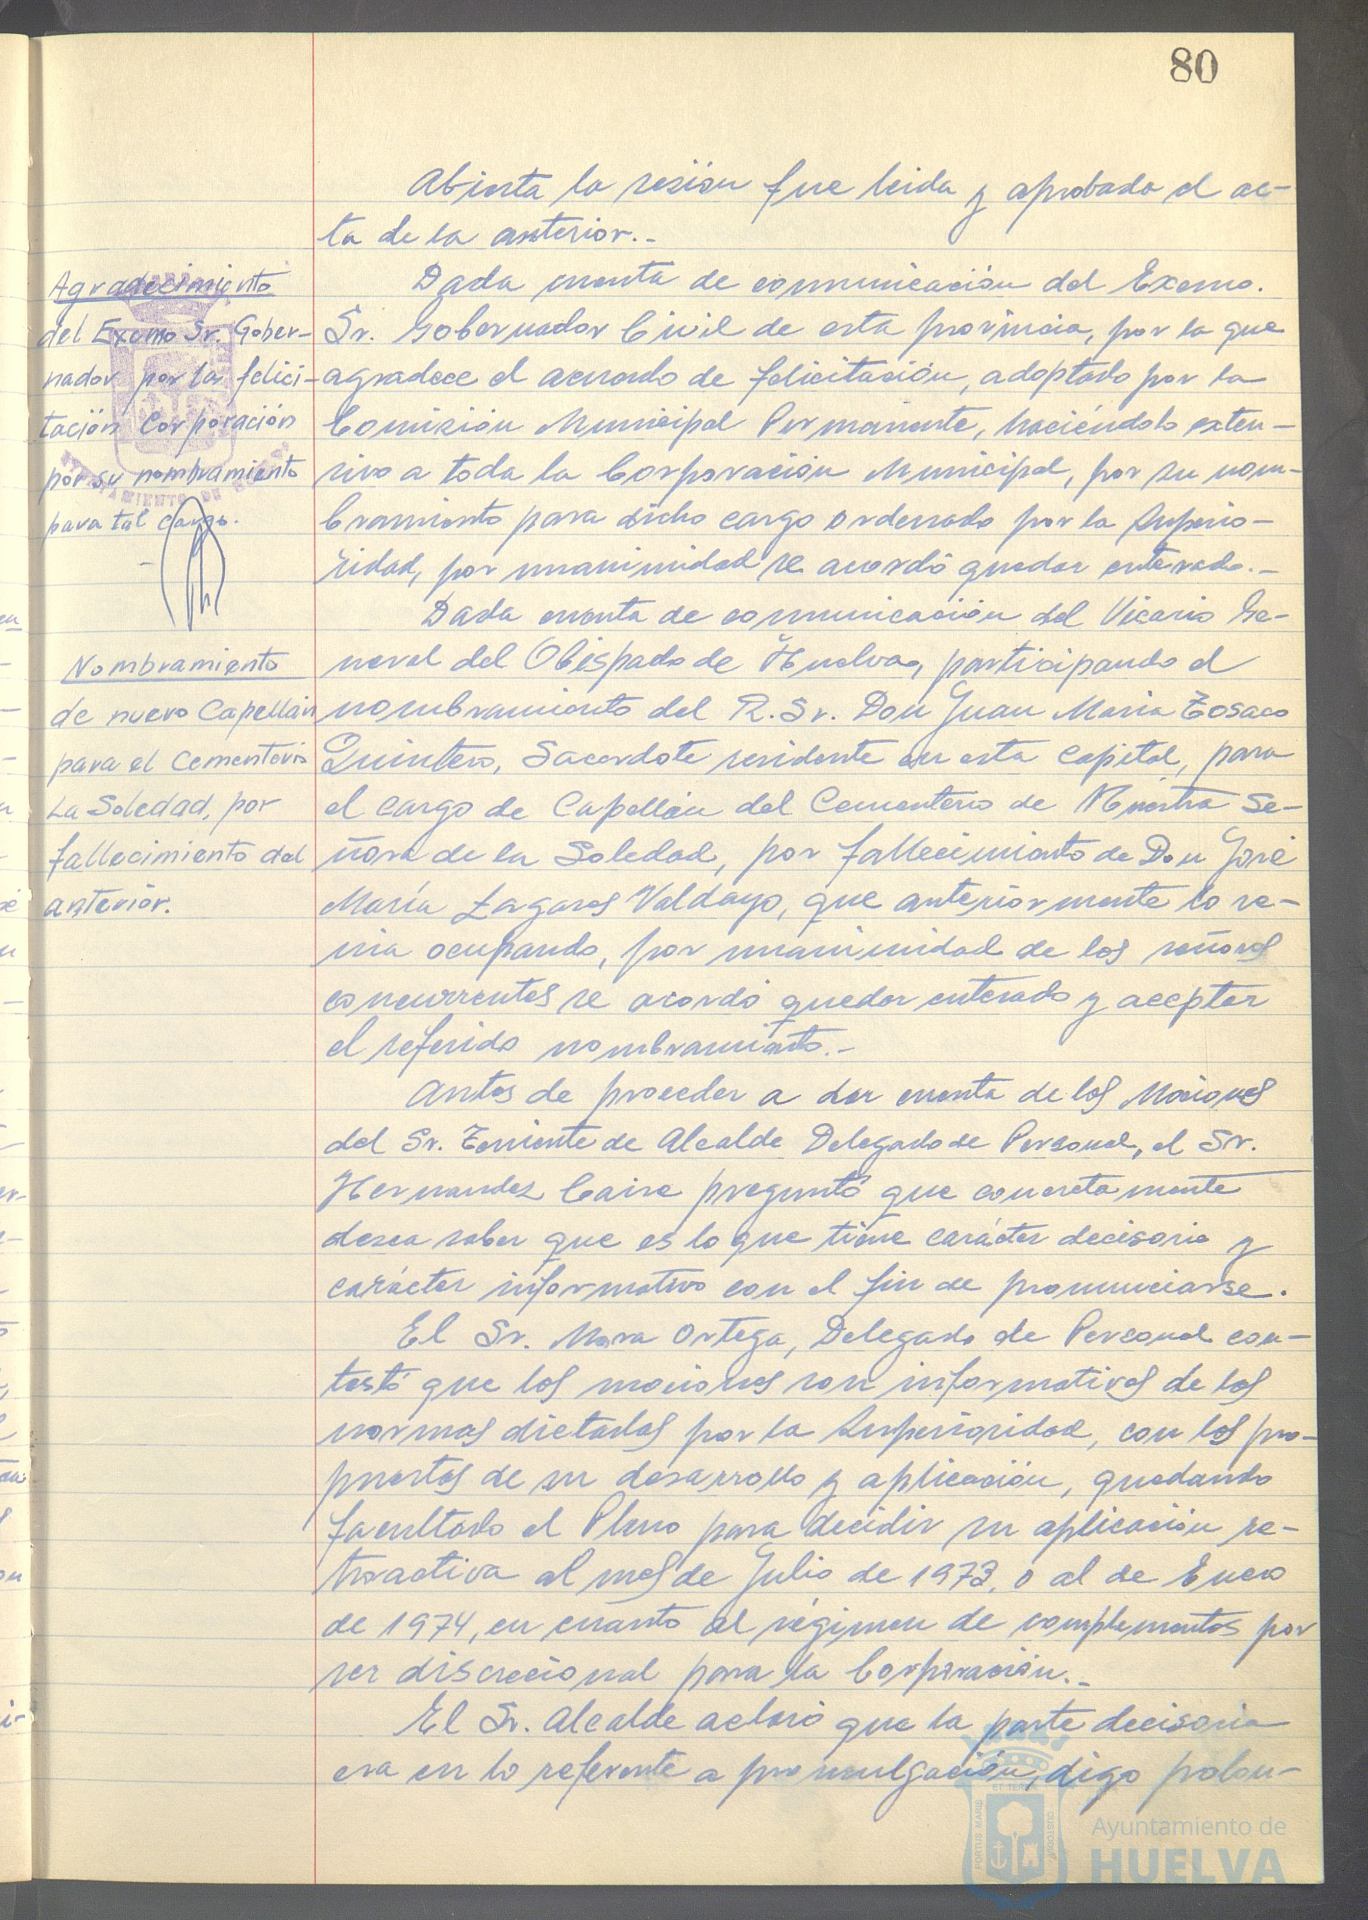 80
Abierta la sesión fue leida y aprobada el ac-
ta de la anterior.-
Agradecimiento
del Excmo Sr. Gober-
nador por la felici-
tación Corporación
por su nombramiento
para tal cargo.
Dada cuenta de comunicación del Excmo.
Sr. Gobernador Civil de esta provincia, por la que
agradece el acuerdo de felicitación, adoptado por la
Comisión Municipal Permanente, haciéndolo exten-
sivo a toda la Corporación Municipal, por su nom-
bramiento para dicho cargo ordenado por la Superio-
ridad, por unanimidad se acordó quedar enterado.-
Nombramiento
de nuevo Capellán
para el Cementerio
La Soledad, por
fallecimiento del
anterior.
Dada cuenta de comunicación del Vicario Ge-
neral del Obispado de Huelva, participando el
nombramiento del R. Sr. Don Juan Maria Tosaco
Quintero, Sacerdote residente en esta Capital, para
el cargo de Capellán del Cementerio de Nuestra Se-
ñora de la Soledad, por fallecimiento de Don José
María Lagares Valdayo, que anteriormente lo ve-
nia ocupando, por unanimidad de los señores
concurrentes se acordó quedar enterado y aceptar
el referido nombramiento.-
Antes de proceder a dar cuenta de las Mociones
del Sr. Teniente de Alcalde Delegado de Personal, el Sr.
Hernandez Caire preguntó que concretamente
desea saber que es lo que tiene carácter decisorio y
carácter informativo con el fin de pronunciarse.
El Sr. Mora Ortega, Delegado de Personal con-
testó que las mociones son informativas de las
normas dictadas por la Superioridad, con las pro-
puestas de su desarrollo y aplicación, quedando
facultado el Pleno para decidir su aplicación re-
troactiva al mes de Julio de 1973, o al de Enero
de 1974, en cuanto al régimen de complementos por
ser discrecional para la Corporación.-
El Sr. Alcalde aclaró que la parte decisoria
era en lo referente a promulgación, digo prolon-
PORTUS MARIS
ET TERRAE
CUSTODIA
Ayuntamiento de
HUELVA